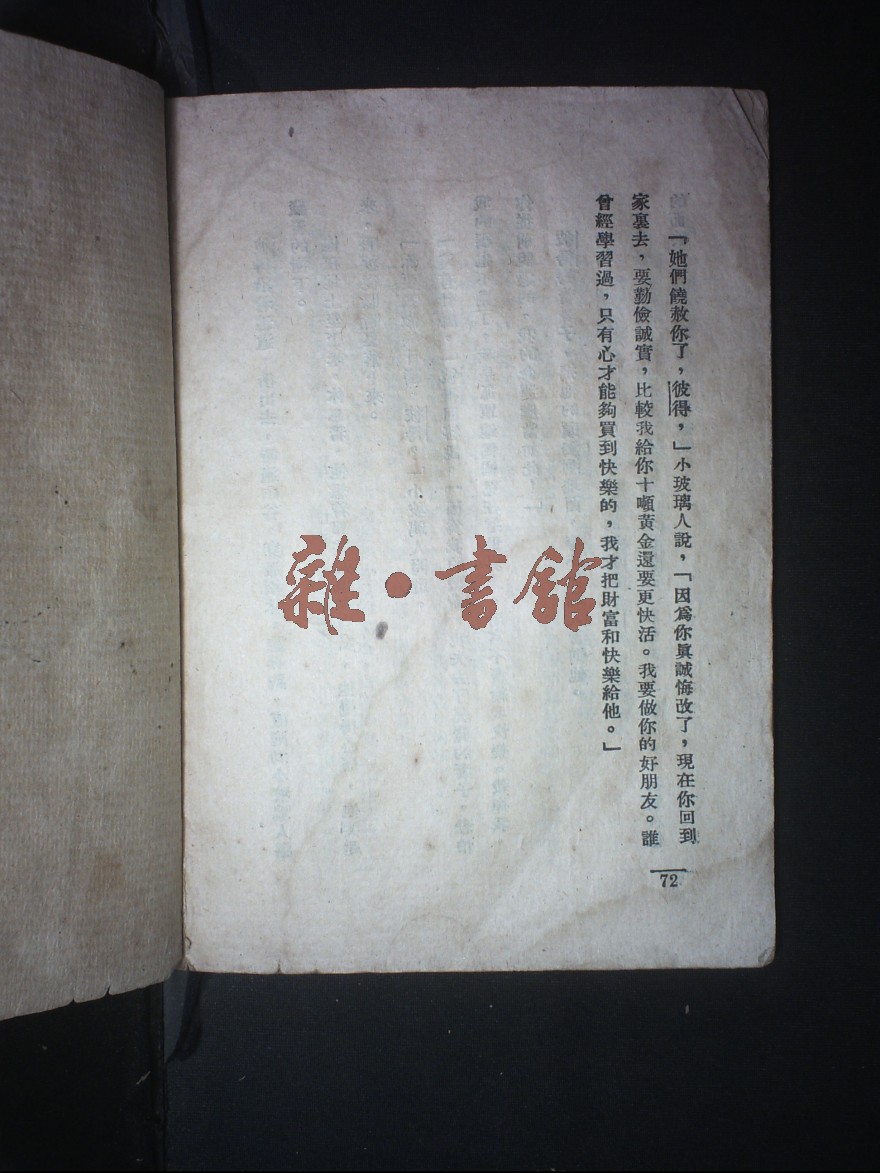 「她們饒赦你了，彼得，」小玻璃人說，「因爲你眞誠悔改了，現在你回到
家裏去，要勤儉誠實，比較我給你十噸黃金還要更快活。我要做你的好朋友。誰
曾經學習過，只有心才能夠買到快樂的，我才把財富和快樂給他。」
72
雜·書館